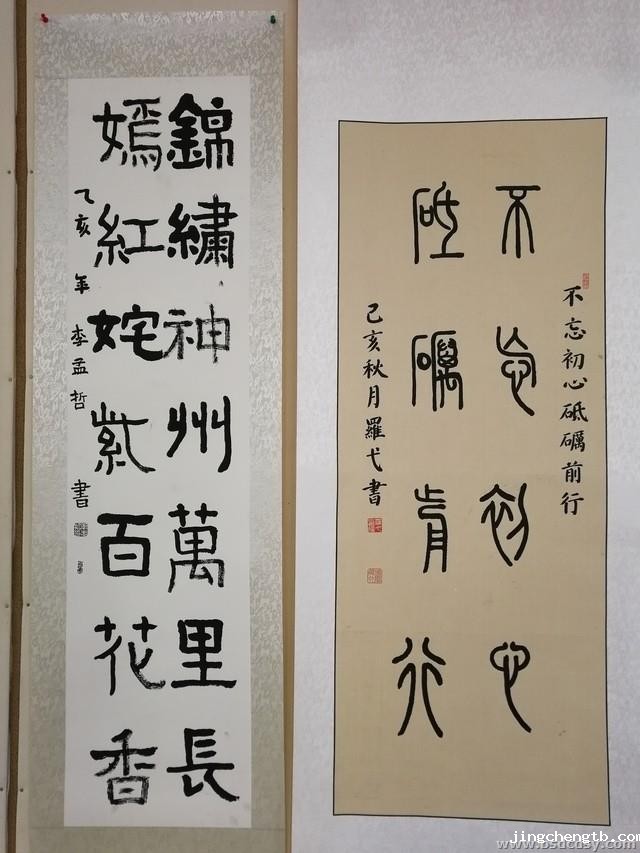 不忘初心砥礪前行
不忘初心
砥礪前行
己亥秋月羅弋書
錦繡神州萬里長
嫣紅姹紫百花香
乙亥年李孟哲書
jingchengtb.com
www.bsdcdsy.com